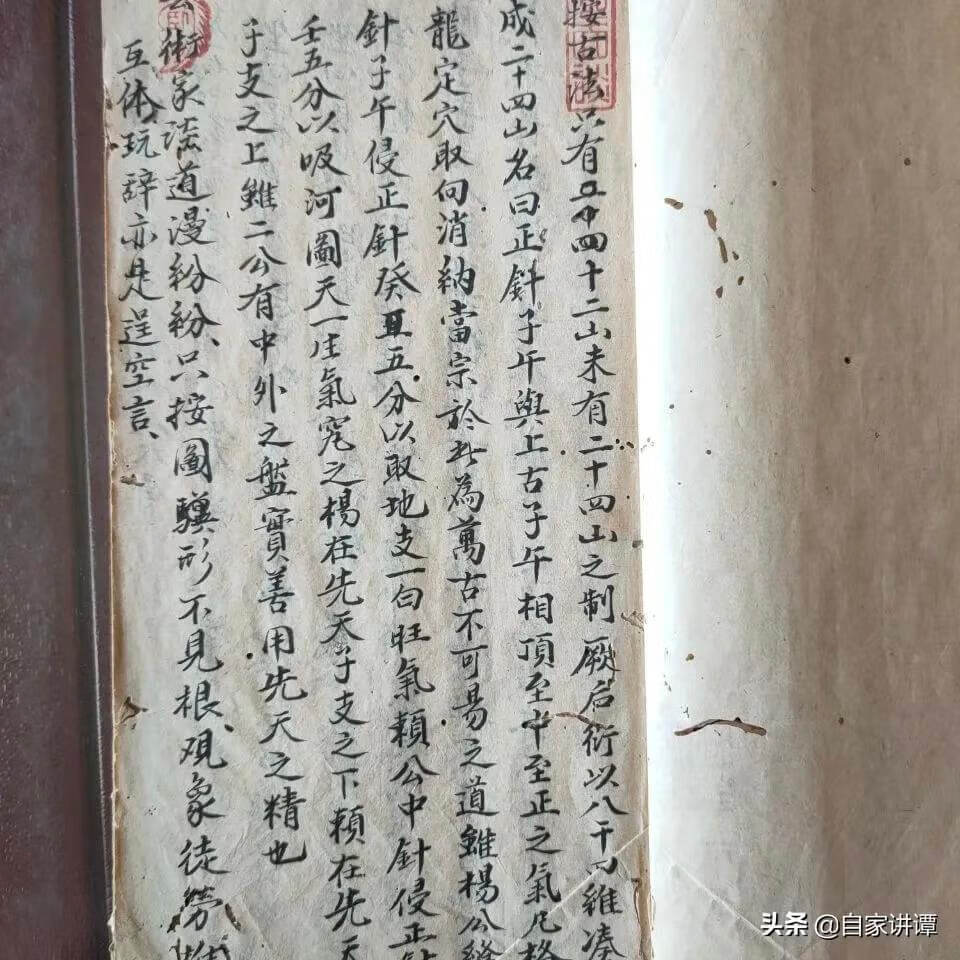 按古法只有五中四十二山未有二十四山之制厥后衍以八干四維凑
成二十四山名曰正針子午與上古子午相頂至中至正之氣凡格
龍定穴取向消納當宗於此為萬古不可易之道雖楊公縫
針子午侵正針癸丑五分以取地支一旬旺氣賴公中針侵正針
壬五分以吸河圖天一生氣究之楊在先天子支之下賴在先天
子支之上雖二公有中外之盤實善用先天之精也
術家談道漫紛紛、只按圖驥形不見根、观象徒勞
互体玩辞亦是逞空言、
头条 @自家讲谭